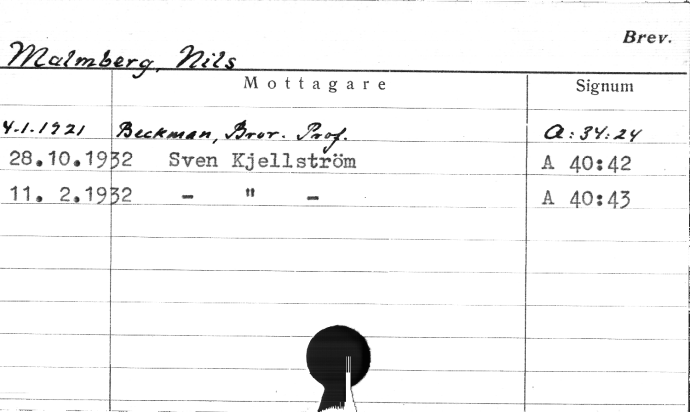 Brev.
Malmberg, Nils
Mottagare Signum
4.1.1921 Beckman, Bror. Prof. A:34:24
28.10.1932 Sven Kjellström A 40:42
11. 2.1932 – " – A 40:43